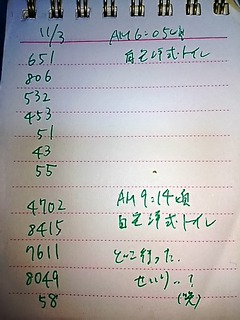 11/3 AM 6:05頃
651 自宅洋式トイレ
806
532
453
51
43
55
4702 AM 9:14頃
8415 自宅洋式トイレ
7611 どこ行った.
8049 せいり..?
58 (笑)